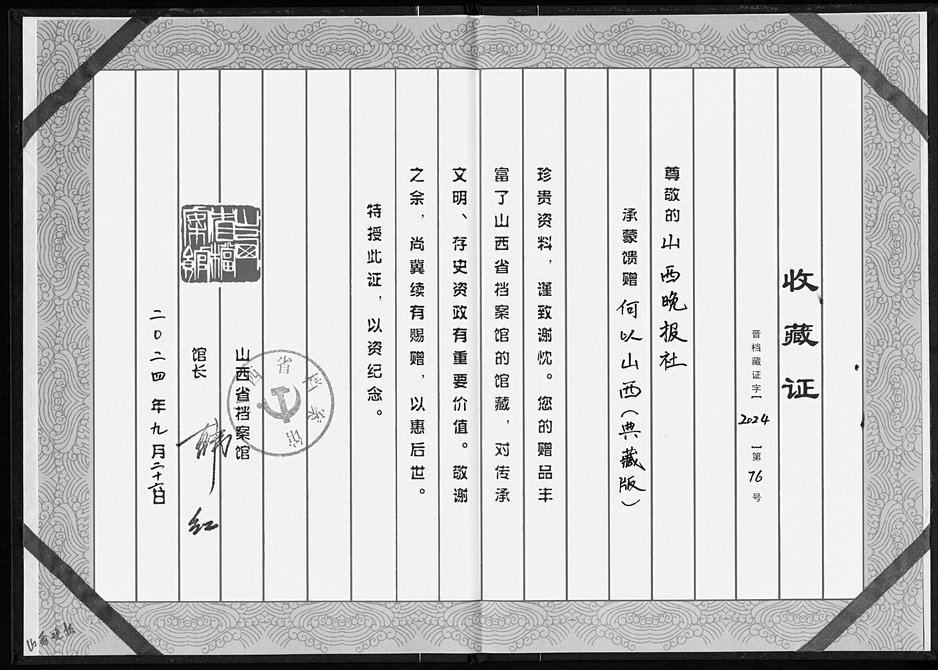 收藏证
晋档藏证字【2024】第76号
尊敬的山西晚报社
承蒙馈赠何以山西(典藏版)
珍贵资料，谨致谢忱。您的赠品丰
富了山西省档案馆的馆藏，对传承
文明、存史资政有重要价值。敬谢
之余，尚冀续有赐赠，以惠后世。
特授此证，以资纪念。
山西省档案馆
西省档案馆
馆长 韩红
山西省档案馆
二〇二四年九月二十六日
山西晚报